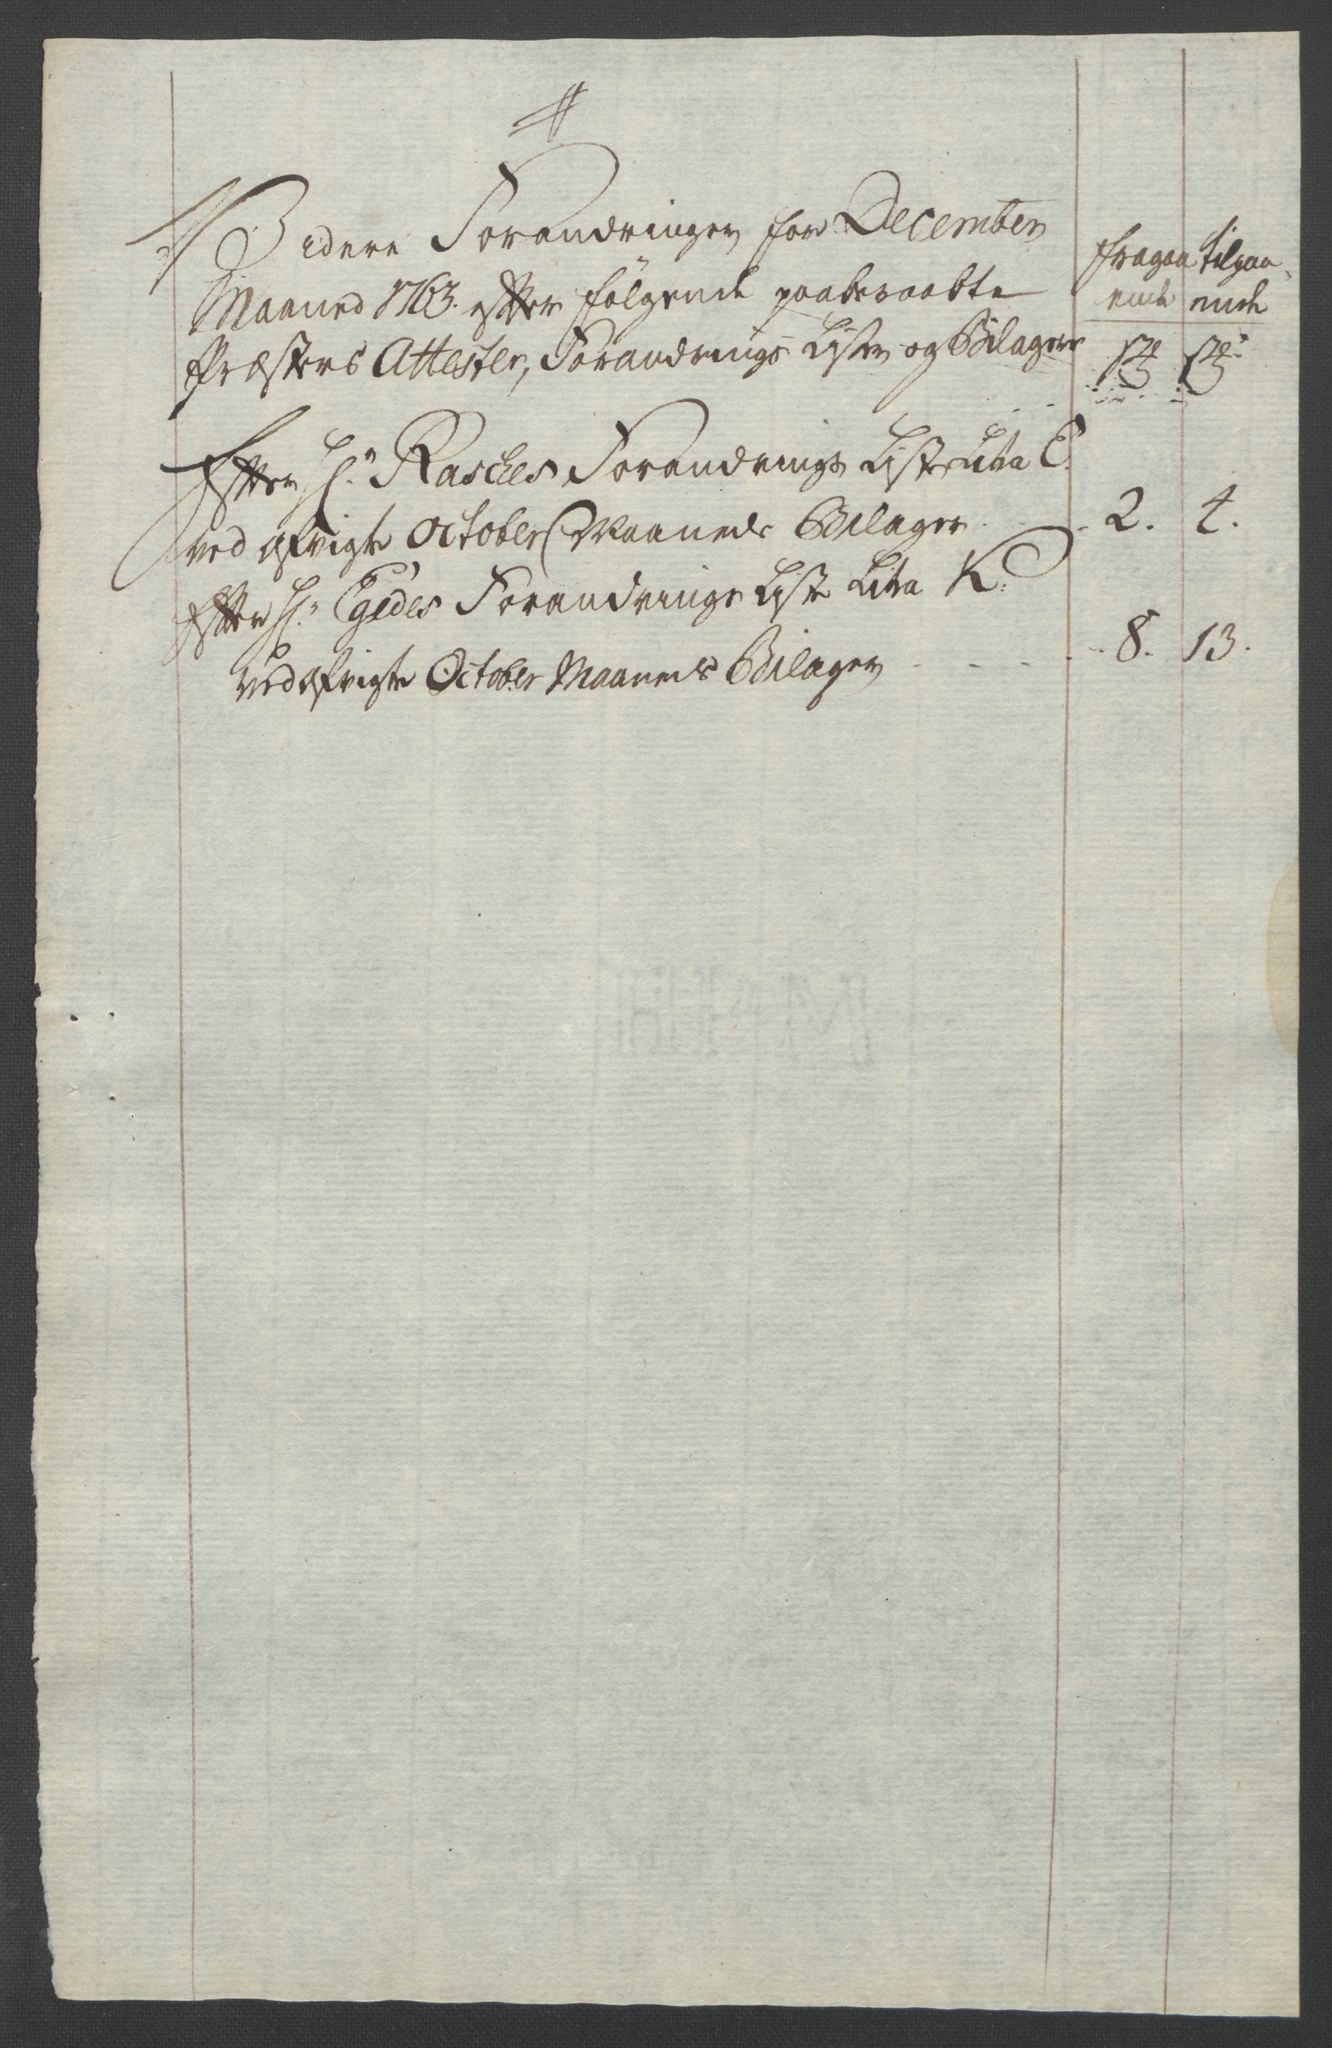 Videre Forandringer for December
Maaned 1763. efter følgende paaberaabte
Præsters Attester, Forandrings Lister og Bilager
fragaa tilgaa-
ende ende
Efter Hr. Rasches Forandrings Liste Litra E.
ved afvigte October Maaneds Bilager . . 2. 4.
Efter Hr. Egedes Forandrings Liste Litra K.
ved afvigte October Maaneds Bilager . . . . . 8. 13.